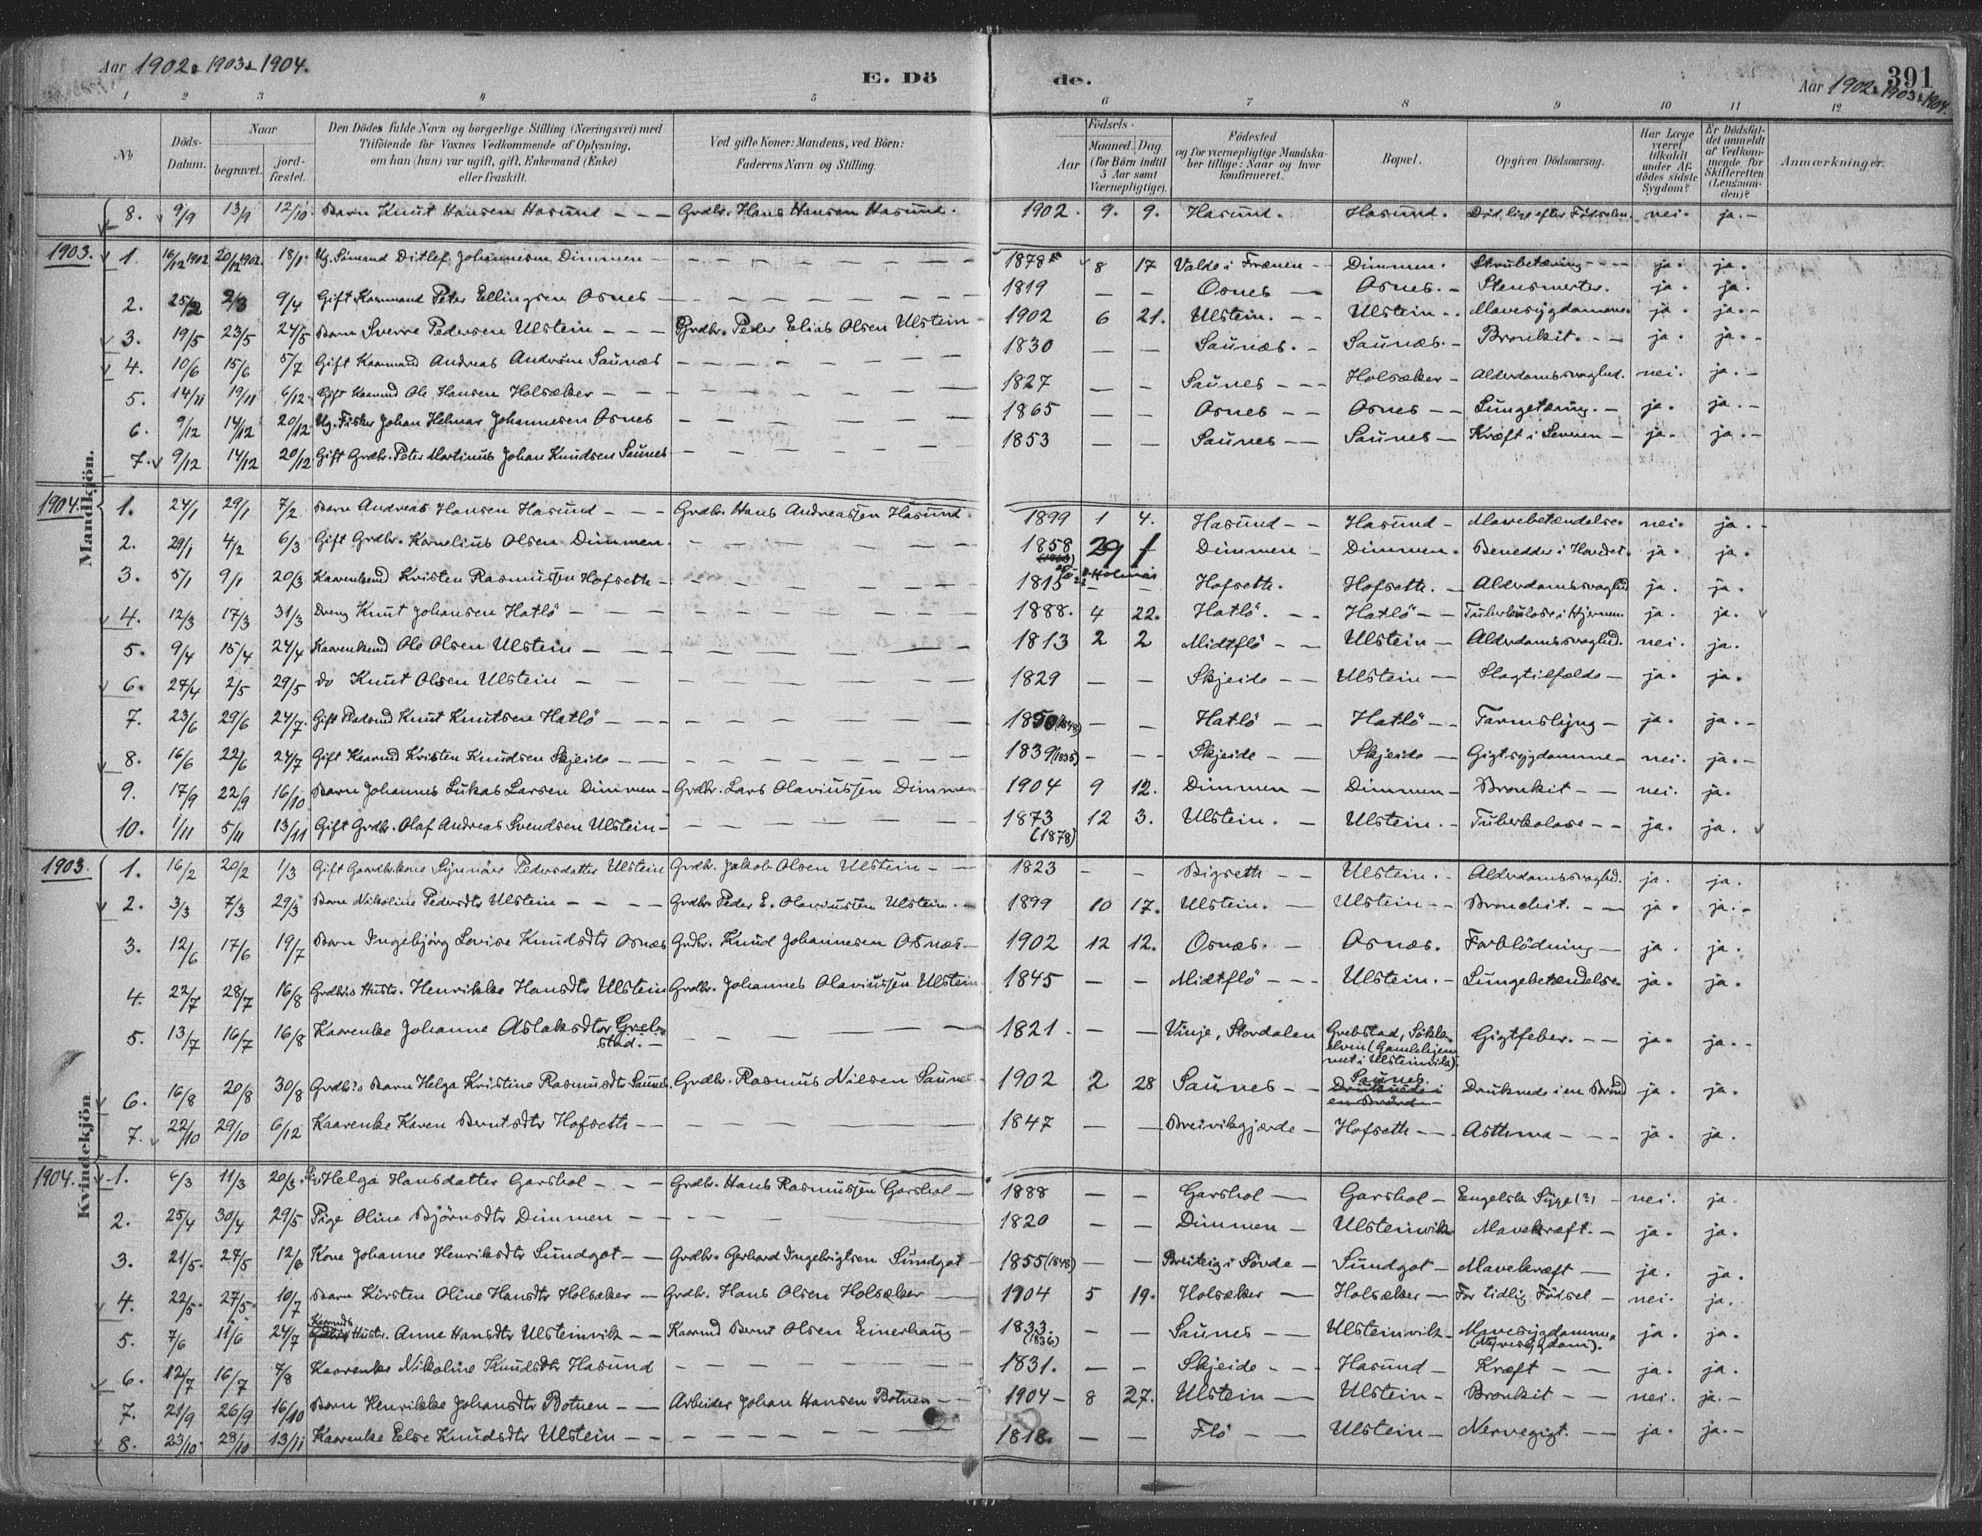 Aar 1902, 1903 & 1904.
E. Dö
de.
391
Aar 1902, 1903 & 1904.
1 2 3 4 5 6 7 8 9 10 11 12
No
Döds-Datum.
Naar
begravet.
jord-fæstet.
Den Dödes fulde Navn og borgerlige Stilling (Næringsvei) med Tilföiende for Voxnes Vedkommende af Oplysning, om han (hun) var ugift, gift, Enkemand (Enke) eller fraskilt.
Ved gifte Koner: Mandens, ved Börn: Faderens Navn og Stilling.
Födsels-
Aar
Maaned. Dag
(for Börn indtil 5 Aar samt Værnepligtige).
Födested og for værnepligtige Mandskaber tillige: Naar og hvor konfirmeret.
Bopæl.
Opgiven Dödsaarsag.
Har Læge været tilkaldt under Afdödes sidste Sygdom?
Er Dödsfaldet anmeldt af Vedkommende for Skifteretten (Lensmanden)?
Anmærkninger.
Mandkjön.
8. 9/9 13/9 12/10 Barn Knut Hansen Hasund – – – Grdbr. Hans Hansen Hasund. 1902. 9. 9. Hasund. Hasund. Död lige efter Fødselen. nei. ja. –
1903. 1. 16/12 1902 20/12 1902. 18/1. Ug. Sömand Ditlef Johannesen Dimmen – 1878 8 17 Valde i Frænen – Dimmen. Strubetæring – – ja. ja.
2. 25/2 2/3 9/4 Gift Kaarmand Peter Ellingsen Osnes – 1819 – – Osnes – Osnes. – Stensmerter. ja. ja.
3. 19/5 23/5 24/5 Barn Sverre Pedersen Ulstein – – – Grdbr. Peder Elias Olsen Ulstein – 1902 6 21. Ulstein. – – Ulstein – . Mavesygdomme. ja. ja. –
4. 10/6 15/6 5/7 Gift Kaarmand Andreas Andersen Saunæs – 1830 – – Saunæs. – Saunæs. – Bronkit. – – ja. ja. –
5. 14/11 19/11 6/12. Gift Kaarmd Ole Hansen Holsæker – 1827 – – Saunes – – – Holsæker – Alderdomssvaghed. nei. ja. –
6. 9/12 14/12 20/12 Ug. Fisker Johan Helmar Johannesen Osnes 1865 – – Osnes – – Osnes – – Lungetæring. – ja. ja. –
7. 9/12 14/12 20/12 Gift Grdbr. Peter Martinus Johan Knudsen Saunes 1853 – – Saunes – – Saunes – Kræft i Leveren – ja. ja. –
1904. 1. 24/1 29/1 7/2 Barn Andreas Hansen Hasund – – – Grdbr. Hans Andreassen Hasund. 1899 1 4. Hasund – – Hasund – Mavebetændelse. nei. ja. –
2. 29/1 4/2 6/3 Gift Grdbr. Kornelius Olsen Dimmen. 1858 29 1 Dimmen – Dimmen. Benedder i Hovdet. ja. ja.
3. 5/1 9/1 20/3 Kaarenkemd Kristen Rasmussen Hofseth – 1815 – – Hofseth. Hofseth. – Alderdomssvaghed ja. ja.
4. 12/3 17/3 31/3 Dreng Knut Johansen Hatlö – 1888. 4 22. Hatlö. – – Hatlö – – Tuberkulose i Hjernen ja. ja.
5. 9/4 15/4 24/4 Kaarenkemd Ole Olsen Ulstein – 1813 2 2 Midtflö – – Ulstein – Alderdomssvaghed. nei. ja.
6. 27/4 2/5 29/5 do Knut Olsen Ulstein – 1829 – – Skjeide – – Ulstein – Slagtilfælde – ja. ja.
7. 23/6 29/6 24/7. Gift Knut Knutsen Hatlö – – – 1850 (1848) – – Hatlö – – Hatlö – – Tarmslyng – ja. ja. –
8. 16/6 22/6 24/7 Gift Kaarmd Kristen Knudsen Skjeide – 1839 (1835) – – – Skjeide – – Skjeide – Gigtsygdomme – nei. ja. –
9. 17/9 22/9 16/10 Barn Johannes Lukas Larsen Dimmen – Grdbr. Lars Olaviussen Dimmen 1904 9 12. Dimmen – Dimmen – Bronkit – – nei. ja.
10. 1/11 5/11 13/11 Gift Grdbr. Olaf Andreas Svendsen Ulstein – 1873 (1878) 12 3. Ulstein. – Ulstein. – Tuberkolose – – ja. ja.
Kvindekjön
1903. 1. 16/2 20/2 1/3 Gift Gaardbr.kone Synnöve Pedersdatter Ulstein Grdbr. Jakob Olsen Ulstein – – 1823 – – Bigseth – – Ulstein. – Alderdomssvaghed. ja. ja.
2. 3/3 7/3 29/3 Barn Nikoline Pedersdtr Ulstein – – – – Grdbr. Peder E. Olaviussen Ulstein. – 1899 10 17. Ulstein. – Ulstein – – Bronchit. – – ja. ja. –
3. 12/6 17/6 19/7 Barn Ingebjörg Lovise Knudsdtr Osnæs Grdbr. Knud Johannesen Osnæs – 1902 12 12. Osnæs. – Osnæs. Forblödning – ja. ja.
4. 22/7 28/7 16/8 Grdbr.s Hustr. Henrikke Hansdtr Ulstein Grdbr. Johannes Olaviussen Ulstein 1845 – – Midtflö – – – Ulstein. – Lungebetændelse ja. ja.
5. 13/7 16/7 16/8 Kaarenke Johanne Aslaksdtr Grebstad. – 1821. – – Vinje, Stordalen Grebstad, Sökkelven (Gamlehjemmet i Ulsteinvik). Gigtfeber. – – ja. ja. –
6. 16/8 20/8 30/8 Grdbr's Barn Helga Kristine Rasmusdtr Saunes. Grdbr. Rasmus Nilsen Saunes – 1902 2 28 Saunes – – Saunes. Druknede i en Brönd Druknede i en Brönd ja. ja.
7. 22/10 29/10 6/12 Kaarenke Karen Berntsdtr Hofseth – – 1847 – – Breivikgjærde – Hofseth – – Asthma – – – ja. ja.
1904. 1. 6/3 11/3 20/3. Helga Hansdatter Garshol – – – Grdbr. Hans Rasmussen Garshol – 1888 – – Garshol – Garshol – Engelsk Syge (?) – nei. ja.
2. 25/4 30/4 29/5 Pige Oline Björnsdtr Dimmen – – 1820 – – Dimmen – Ulsteinvik Mavekræft. – ja. ja.
3. 21/5. 27/5 12/6 Kone Johanne Henriksdtr Sundgot – – Grdbr. Gerhard Ingebrigtsen Sundgot – 1855 (1848) – – Breiteig i Sövde – Sundgot – Mavekræft – ja. ja.
4. 22/5. 27/5. 10/7 Barn Kirsten Oline Hansdtr Holsæker – Grdbr. Hans Olsen Holsæker – 1904 5 19. Holsæker – Holsæker – For tidlig Födsel – nei. ja.
5. 7/6 11/6 24/7 Kaarmds Hustr. Anne Hansdtr Ulsteinvik – – Kaarmd Bernt Olsen Einerhaug – 1833. (1836) – – Saunes – – Ulsteinvik – Mavesygdomme. ja. ja.
6. 12/7 16/7 7/8 Kaarenke Nikoline Knudsdtr Hasund 1831. – – Skjeide – – Hasund – Kræft – – ja. ja.
7. 21/9 26/9 16/10 Barn Henrikke Johansdtr Botnen – – Arbeider Johan Hansen Botnen – – 1904 – 8 27. Ulstein – Ulstein – Bronkit – – nei. ja. –
8. 23/10. 28/10 13/11 Kaarenke Else Knudsdtr Ulstein – – 1818. – – Flö – Ulstein – Nervegigt. – – ja. ja. –